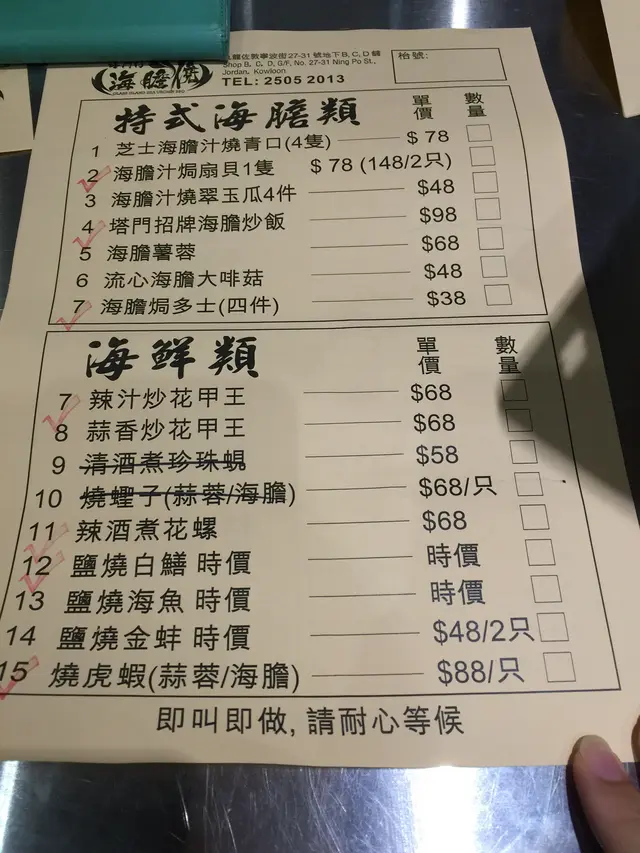 海膽
佐敦寧波街27-31 號地下B, C, D 舖
Shop B, C, D, G/F, No. 27-31 Ning Po St.,
Jordan, Kowloon
TEL: 2505 2013
枱號:
特式海膽類 單價 數量
1 芝士海膽汁燒青口(4隻) $ 78
2 海膽汁焗扇貝1隻 $ 78 (148/2只)
3 海膽汁燒翠玉瓜4件 $48
4 塔門招牌海膽炒飯 $98
5 海膽薯蓉 $68
6 流心海膽大啡菇 $48
7 海膽焗多士(四件) $38
海鮮類 單價 數量
7 辣汁炒花甲王 $68
8 蒜香炒花甲王 $68
9 清酒煮珍珠蜆 $58
10 燒蟶子(蒜蓉/海膽) $68/只
11 辣酒煮花螺 $68
12 鹽燒白鱔 時價 時價
13 鹽燒海魚 時價 時價
14 鹽燒金蚌 時價 $48/2只
15 燒虎蝦(蒜蓉/海膽) $88/只
即叫即做, 請耐心等候